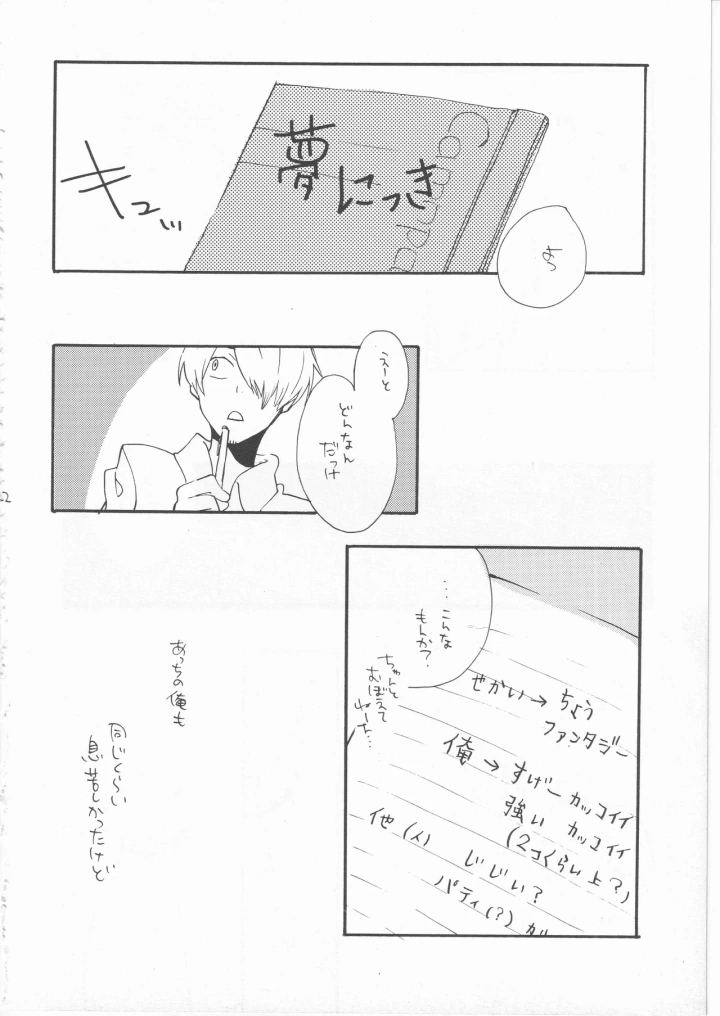 夢にっき
Campa
キュッ
よっ
えーと
どんなん
だっけ
…こんな
もんか？
ちゃんと
せかい→ちょう
ファンタジー
俺→すげーカッコイイ
強いカッコイイ
(2コくらい上？)
他(人) じじい？
パティ(？)が
あっちの俺も
同じくらい
息苦しかったけど